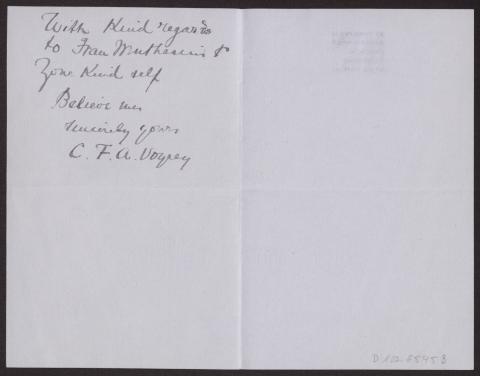 With Kind regards
to Frau Muthesius &
Your Kind self
Believe me
sincerely yours
C. F. A. Voysey
D 102-65453